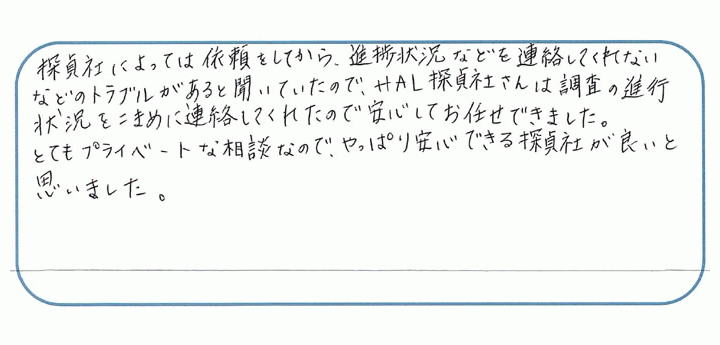 探貞社によっては依頼をしてから、進捗状況などを連絡してくれない
などのトラブルがあると聞いていたので、HAL探貞社さんは調査の進行
状況をこまめに連絡してくれたので安心してお任せできました。
とてもプライベートな相談なので、やっぱり安心できる探貞社が良いと
思いました。